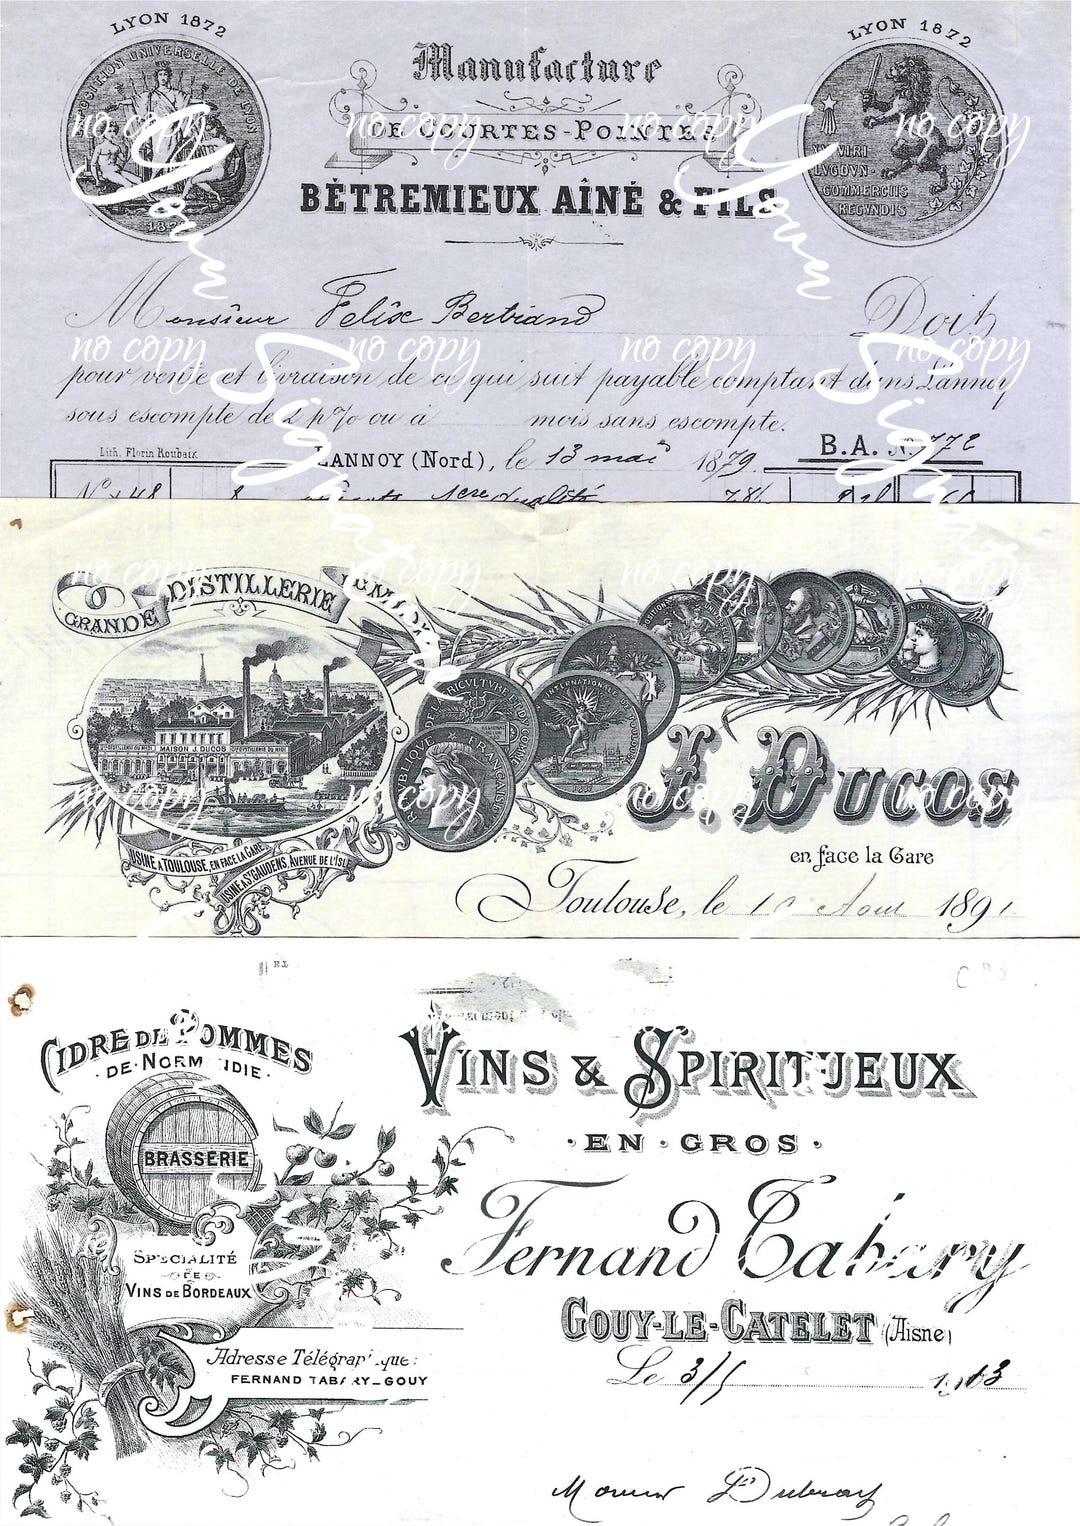 LYON 1872
LYON 1872
EXPOSITION UNIVERSELLE DE LYON
Manufacture
DE COURTES-POINTES
BÉTREMIEUX AÎNÉ & FILS
VIRI
LVGDVN·
COMMERCIIS
REGVNDIS
Monsieur Felix Bertrand Doit
pour vente et livraison de ce qui suit payable comptant dans Lannoy
sous escompte de 2 p% ou à mois sans escompte.
B.A. N. 772
Lith. Florin Roubaix
LANNOY (Nord), le 13 mai 1879.
GRANDE DISTILLERIE DU MIDI
MAISON J. DUCOS
RÉPUBLIQUE FRANÇAISE
J. DUCOS
en face la Gare
USINE A TOULOUSE, EN FACE LA GARE
USINE A ST GAUDENS, AVENUE DE L'ISLE
Toulouse, le Aout 189
CIDRE DE POMMES
·DE·NORM DIE·
VINS & SPIRITUEUX
·EN·GROS·
BRASSERIE
Fernand Tabary
SPÉCIALITÉ
DE
VINS DE BORDEAUX
GOUY-LE-CATELET (Aisne)
Le 3/5 1913
Adresse Télégraphique:
FERNAND TABARY_GOUY
no copy no copy no copy no copy
no copy no copy no copy no copy
no copy no copy no copy no copy
no copy no copy no copy no copy
Your Signature
Your Signature